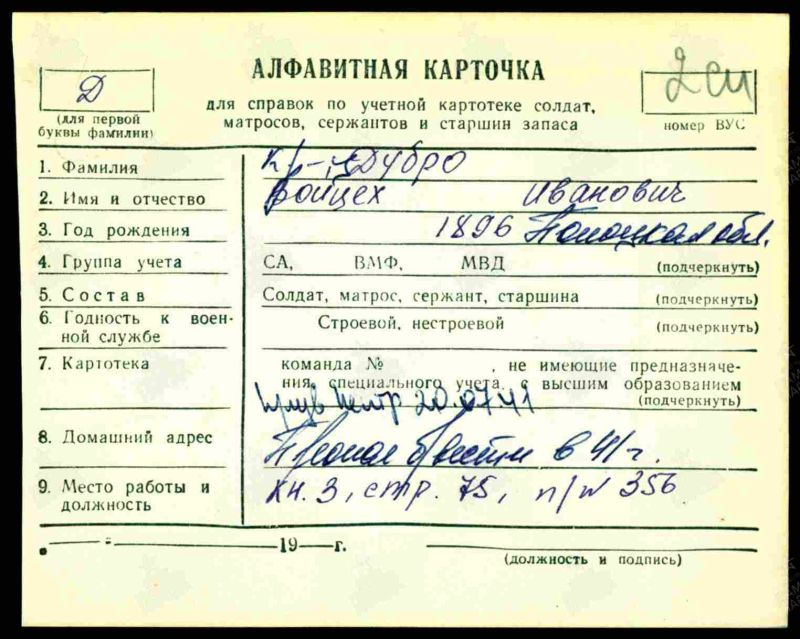 АЛФАВИТНАЯ КАРТОЧКА
для справок по учетной картотеке солдат,
матросов, сержантов и старшин запаса
Д
(для первой
буквы фамилии)
2си
номер ВУС
1. Фамилия Дубро
2. Имя и отчество Войцех Иванович
3. Год рождения 1896 Полоцкая обл.
4. Группа учета СА, ВМФ, МВД (подчеркнуть)
5. Состав Солдат, матрос, сержант, старшина (подчеркнуть)
6. Годность к воен-
ной службе Строевой, нестроевой (подчеркнуть)
7. Картотека команда № , не имеющие предназначе-
ния, специального учета, с высшим образованием
(подчеркнуть)
20.07.41
8. Домашний адрес в 41 г.
9. Место работы и
должность кн. 3, стр. 75, п/№ 356
19 г.
(должность и подпись)